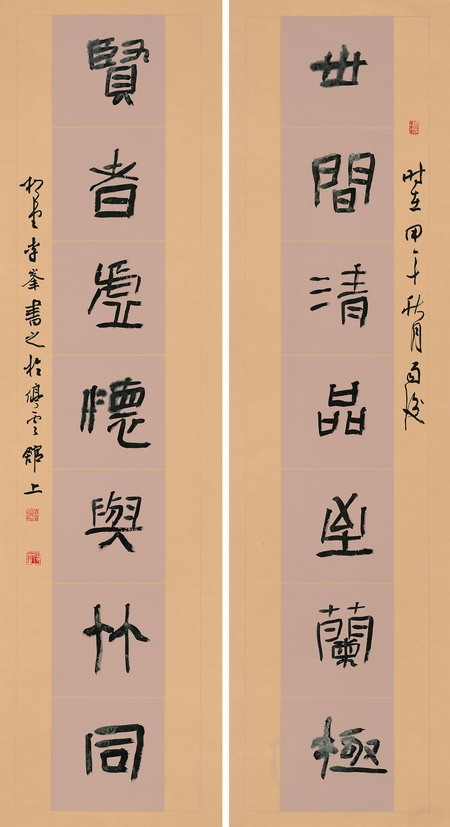 时在甲午秋月雨後
世間清品至蘭極
賢者虛懷與竹同
李峯書之於停雲館上